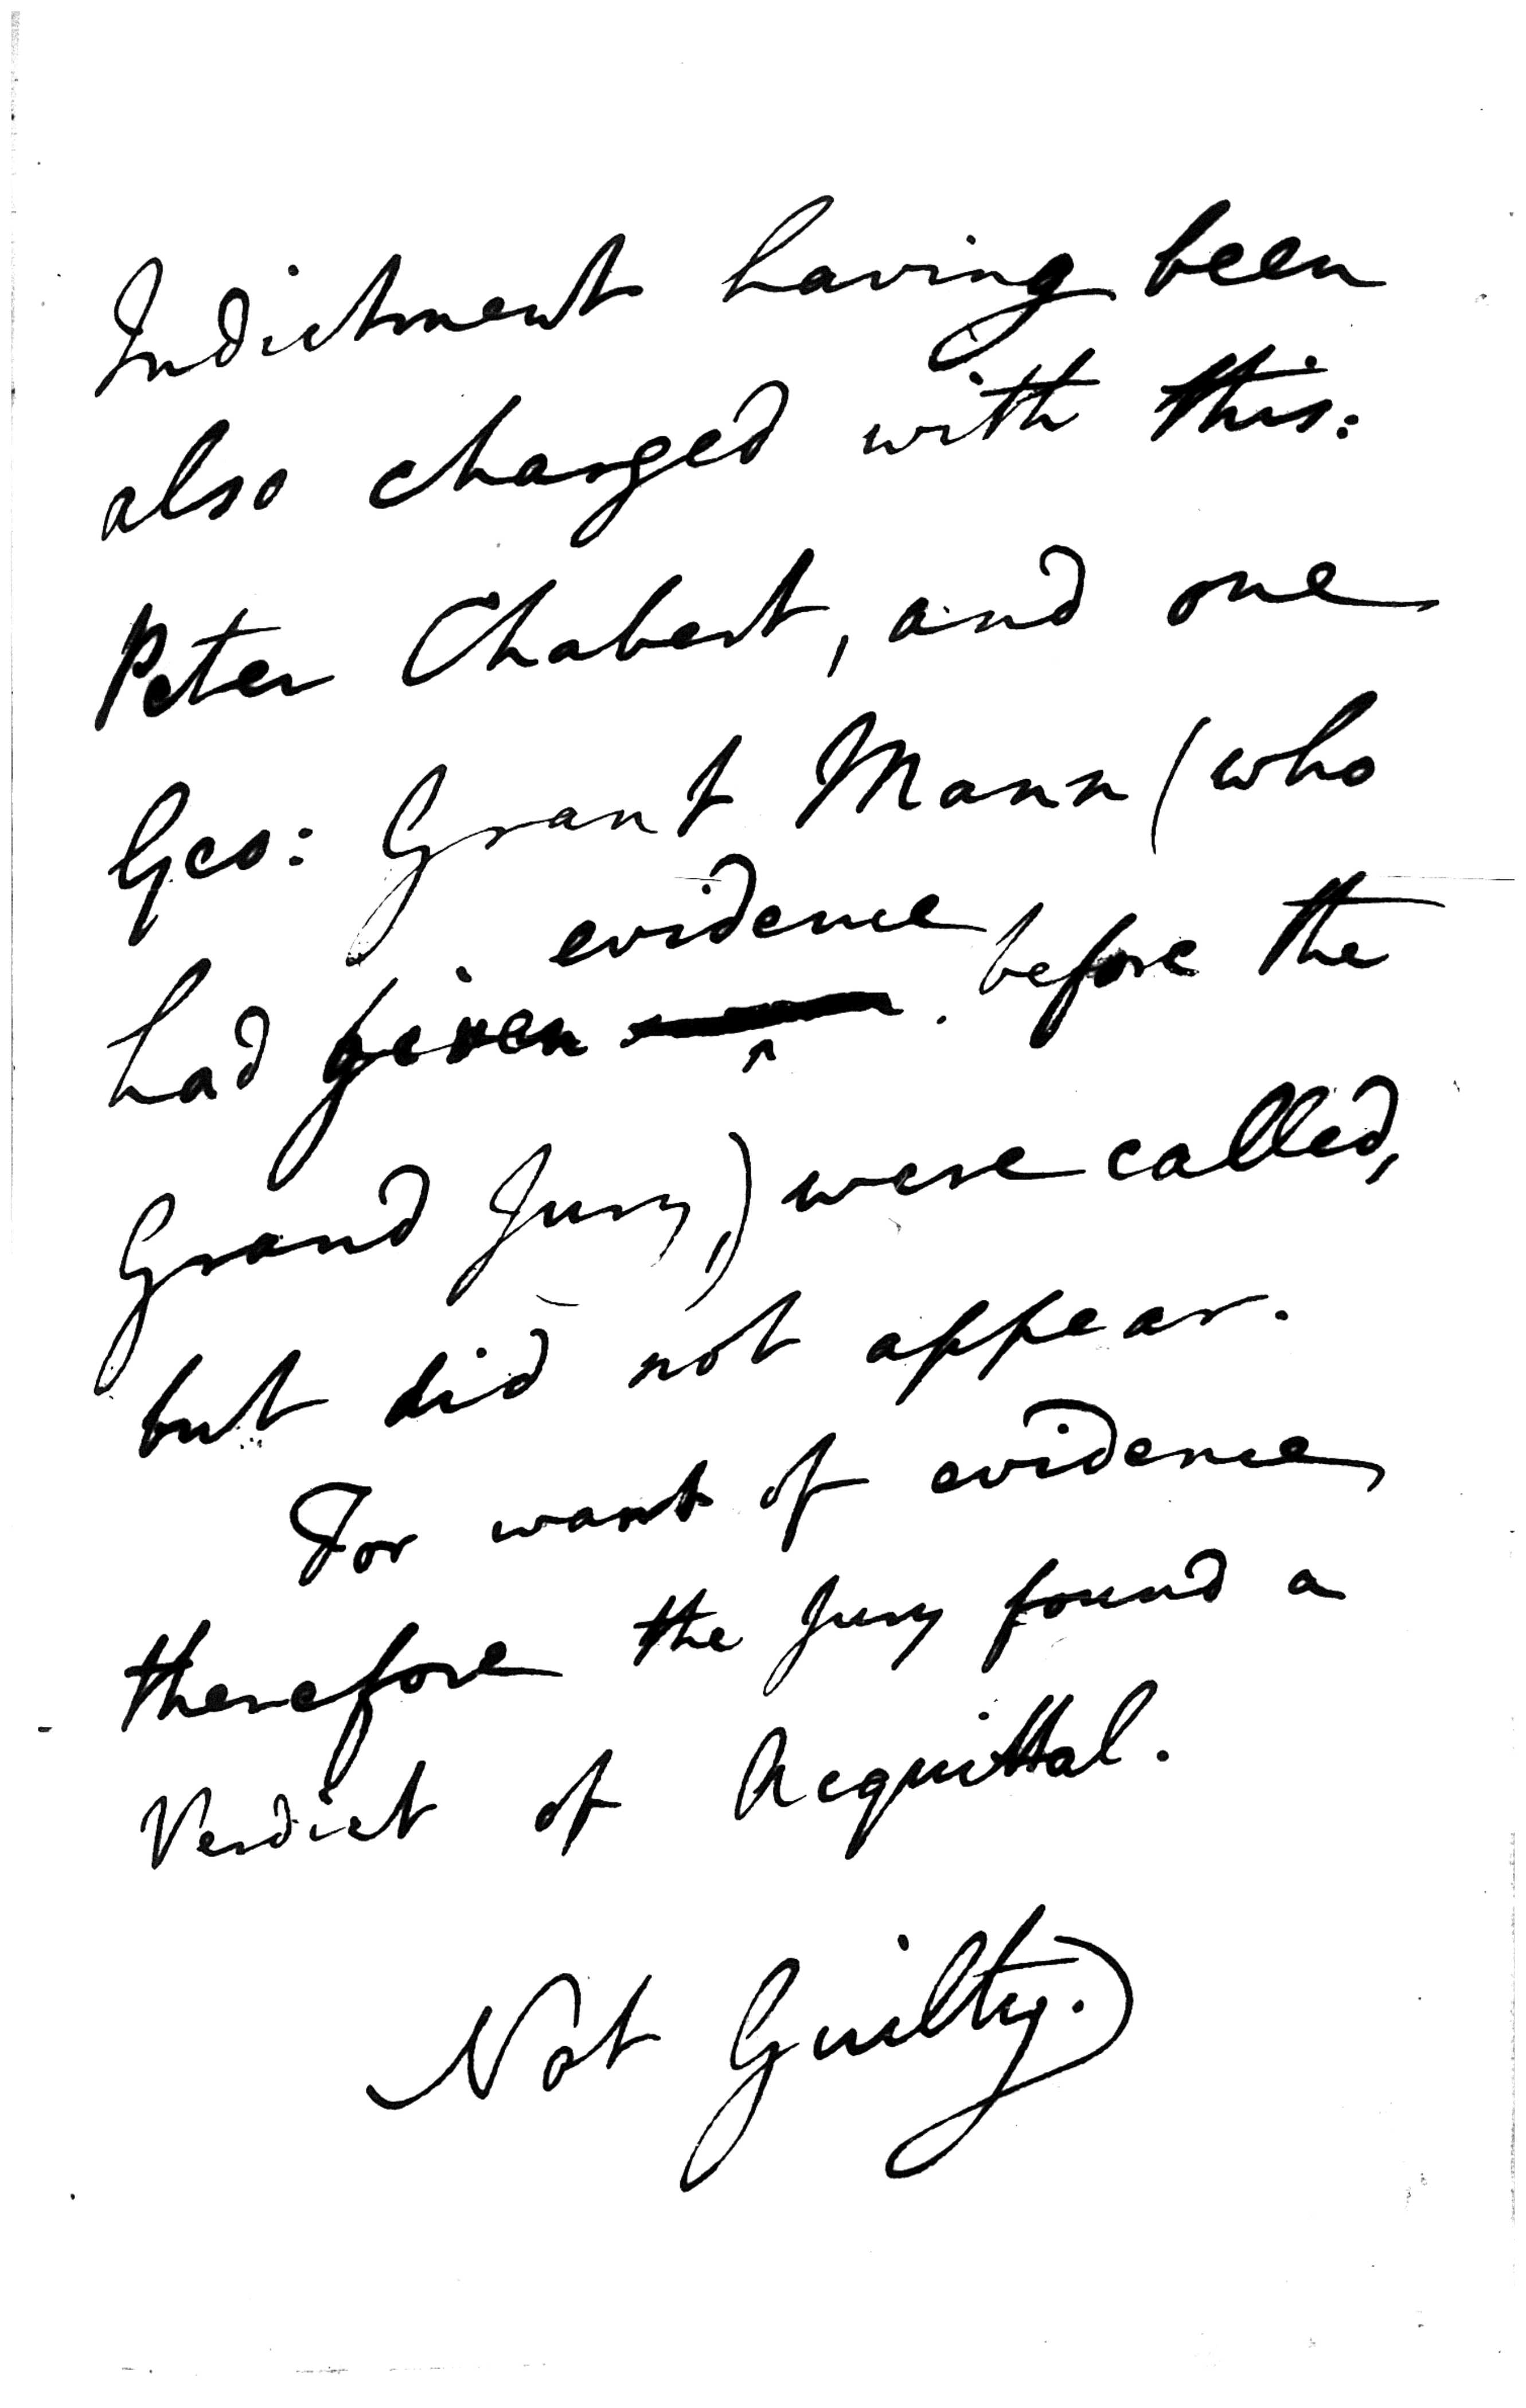 Indictment having been
also charged with this:
Peter Chabert, and one
Geo: Grant Mann (who
had given evidence before the
Grand Jury,) were called,
but did not appear.
For want of evidence,
therefore the Jury found a
Verdict of Acquittal.
Not Guilty.)